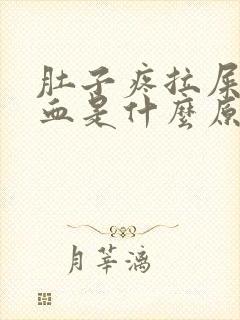 肚子疼拉屎
血是什麼原
月莘漓